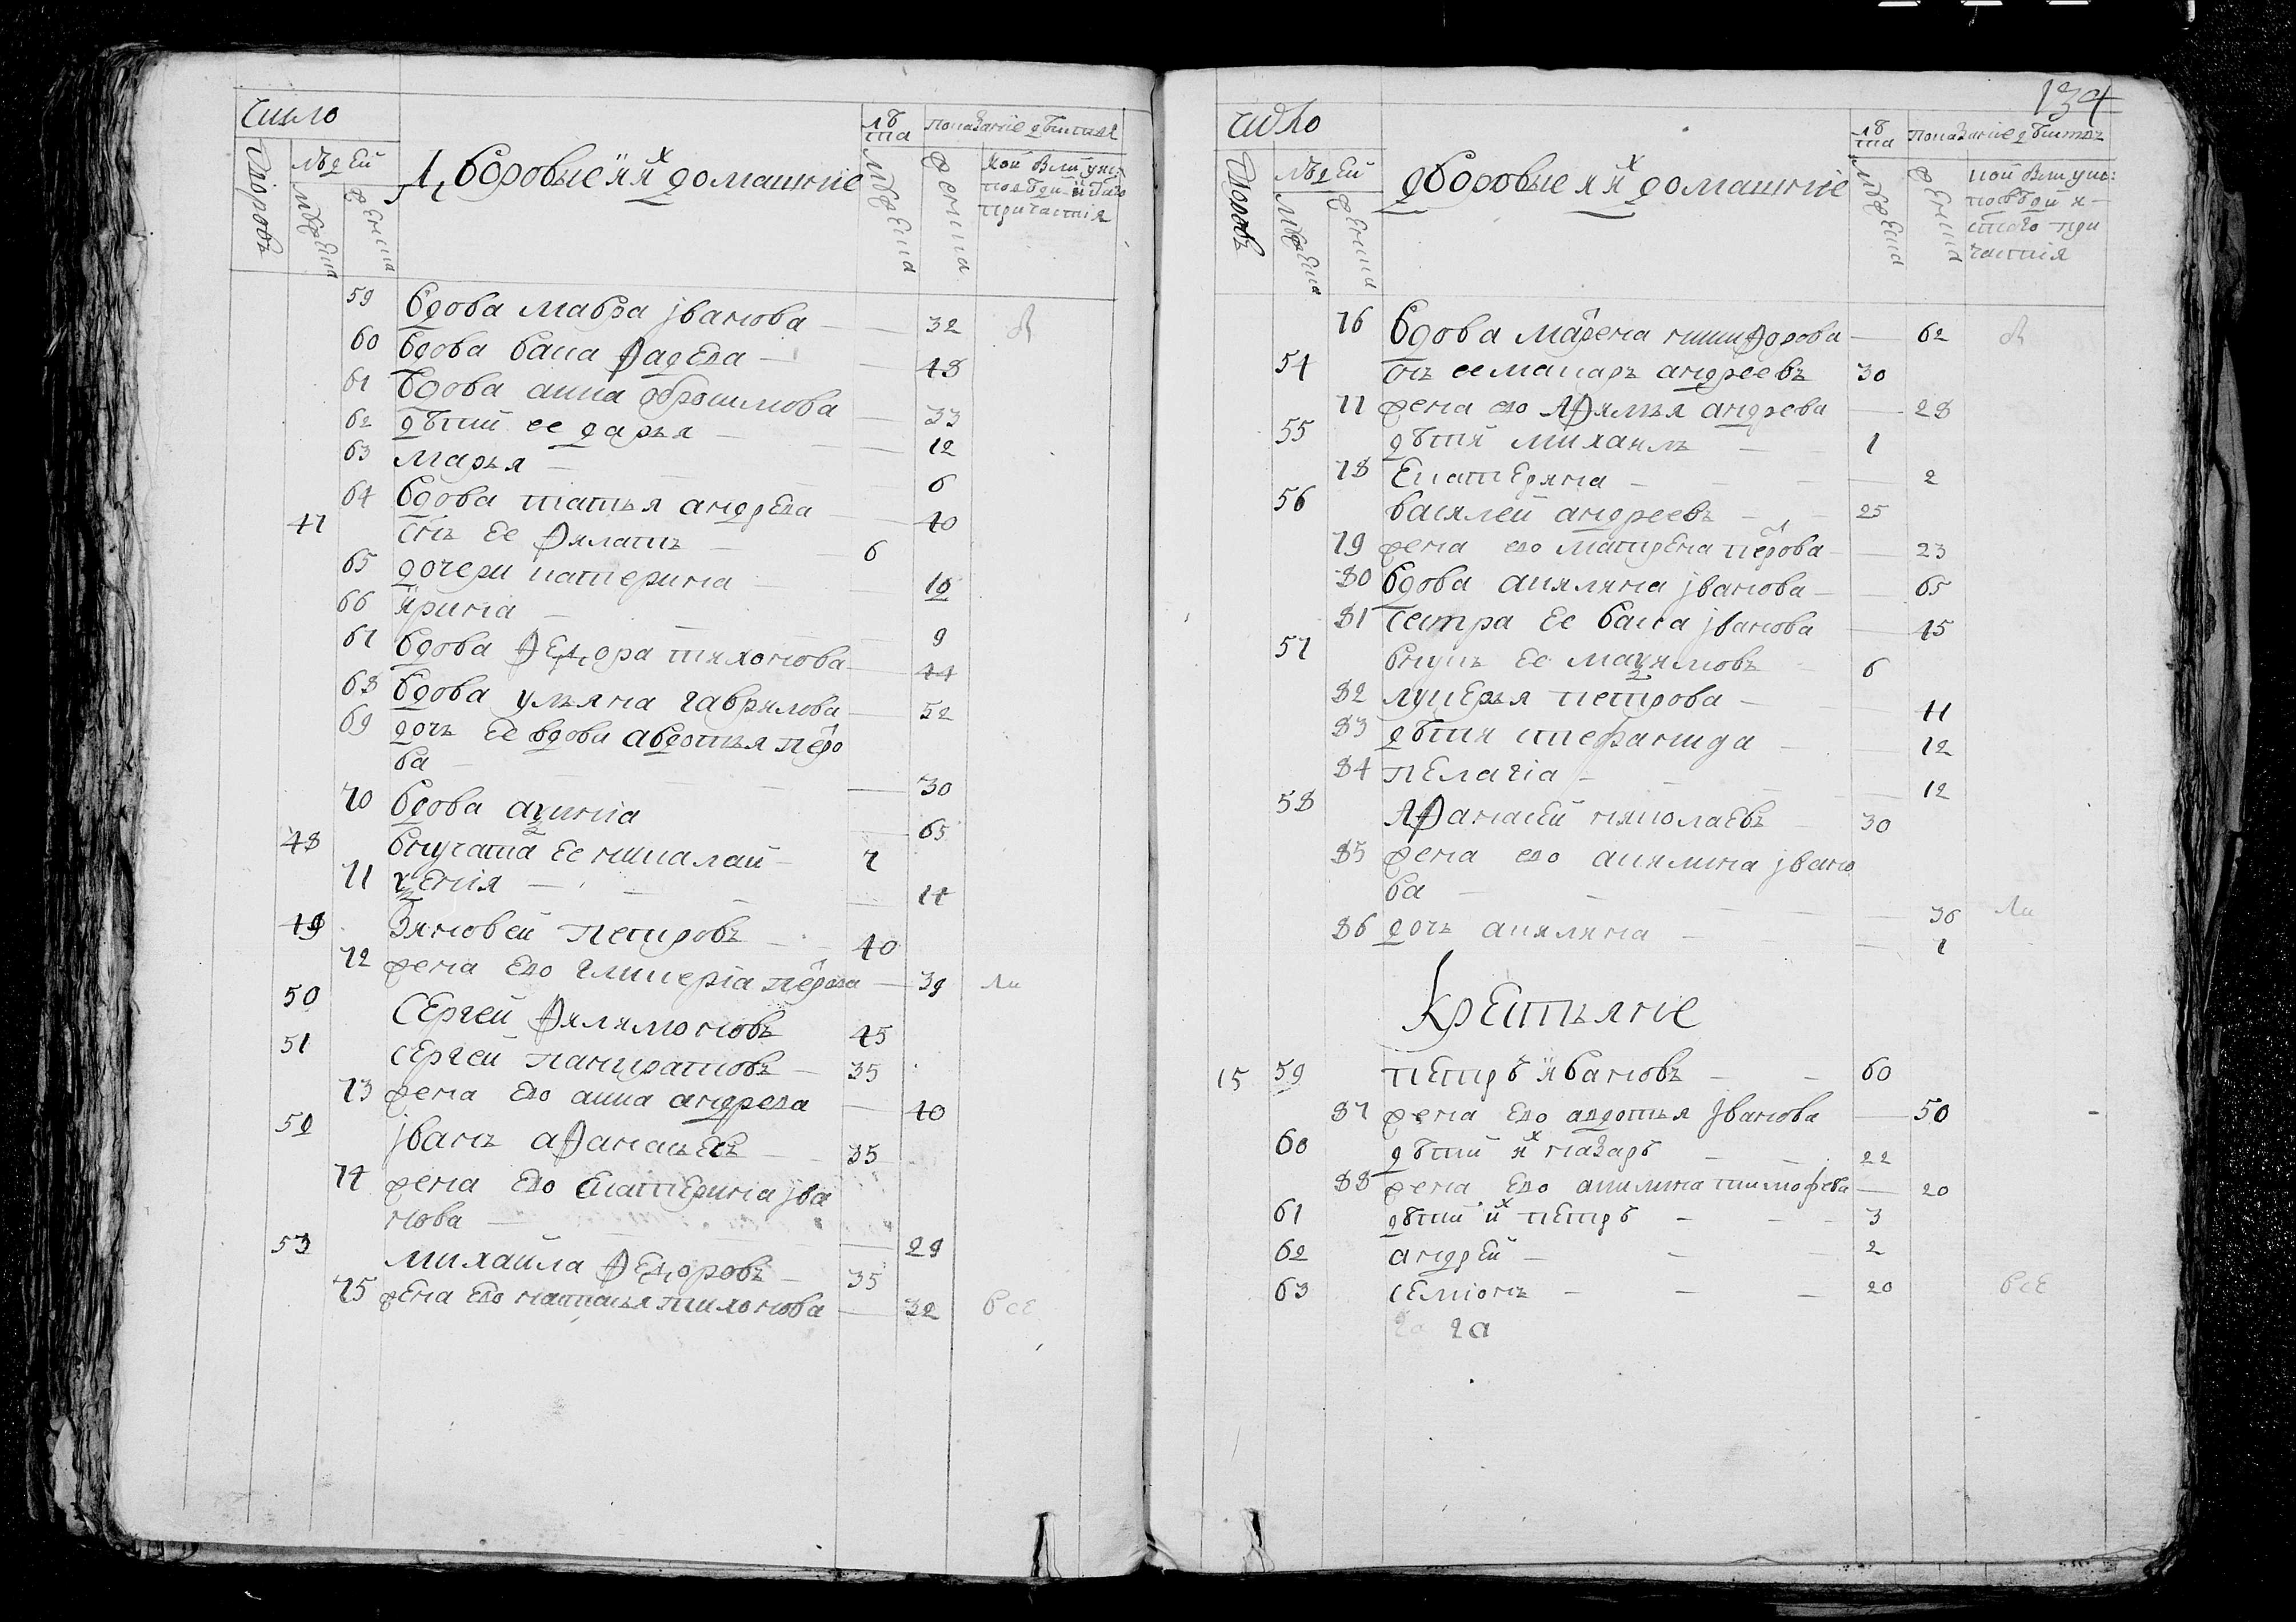 Число
Дворовъ
людей
мужеска
женска
Дворовые и их домашние
лѣта
мужеска
женска
показание действия
кой был у исповеди и святаго причастия
59 вдова мавра jванова — 32
60 вдова васа Фадева — 48
61 вдова анна оброшмова — 33
62 дѣти ее дарья — 12
63 марья — 6
64 вдова татья андрева — 40
47 снъ ее Филатъ — 6
65 дочери катерина — 18
66 ирина — 9
67 вдова Федора тихонова — 44
68 вдова ульяна гаврилова — 52
69 дочь ее вдова авдотья перо
ва — 30
70 вдова аѯиниа 65
48 внучата ее никалай — 7
71 ѯения — 14
49 Зиновей петровъ — 40
72 жена ево гликерiа петрова — 39
50 Сергей Филимоновъ 45
51 сергей панкратовъ — 35
73 жена ево анна андрева — 40
52 jванъ аФанасьевъ — 35
74 жена ево екатерина jва
нова — 29
53 михайла Федоровъ — 35
75 жена ево наталья тихонова — 32 все
134
число
Дворовъ
людей
мужеска
женска
дворовые и их домашние
лѣта
мужеска
женска
показание действъ
кой был у ис:
поведи и
стаго при
частiя
76 вдова марена никиФорова — 62
54 снъ ее макаръ андреевъ 30
77 жена ево АФимья андрева — 28
55 дѣти михаилъ — 1
78 Екатерина — 2
56 василей андреевъ — 25
79 жена ево матрена петрова — 23
80 вдова акилина jванова — 65
81 сестра ее васса jванова — 45
57 внукъ ее маѯимовъ — 6
82 лукерья петрова — 41
83 дѣти стефанида — 12
84 пелагiа — 12
58 АФанасей николаевъ — 30
85 жена ево акилина jвано
ва — 36
86 дочь акилина — 1
Крестьяне
15 59 петръ ивановъ — 60
87 жена ево авдотья jванова — 50
60 дѣти их назаръ — 22
88 жена ево акилина тимофева — 20
61 дѣти их петръ — 3
62 андрей — 2
63 семiонъ — 20 все